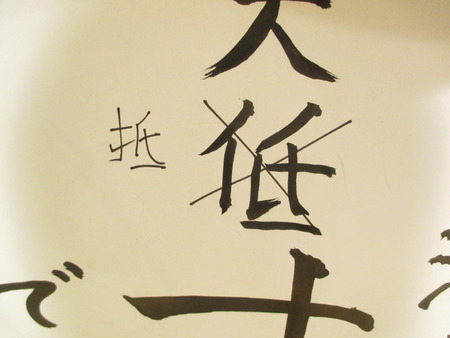 大低
抵
で